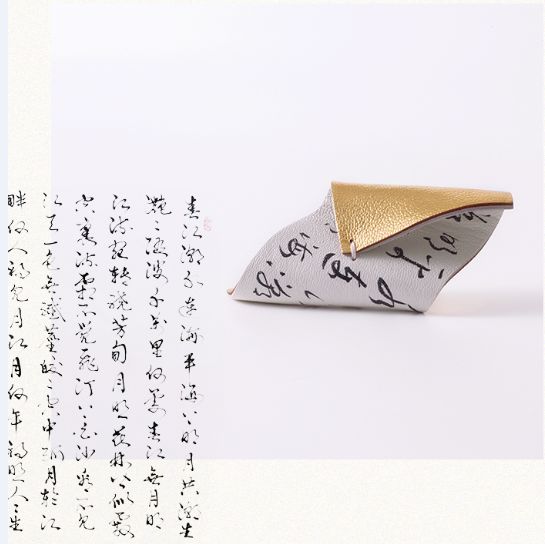 春江潮水連海平海上明月共潮生
灩灩隨波千萬里何處春江無月明
江流宛轉繞芳甸月照花林皆似霰
空裏流霜不覺飛汀上白沙看不見
江天一色無纖塵皎皎空中孤月輪江
畔何人初見月江月何年初照人人生